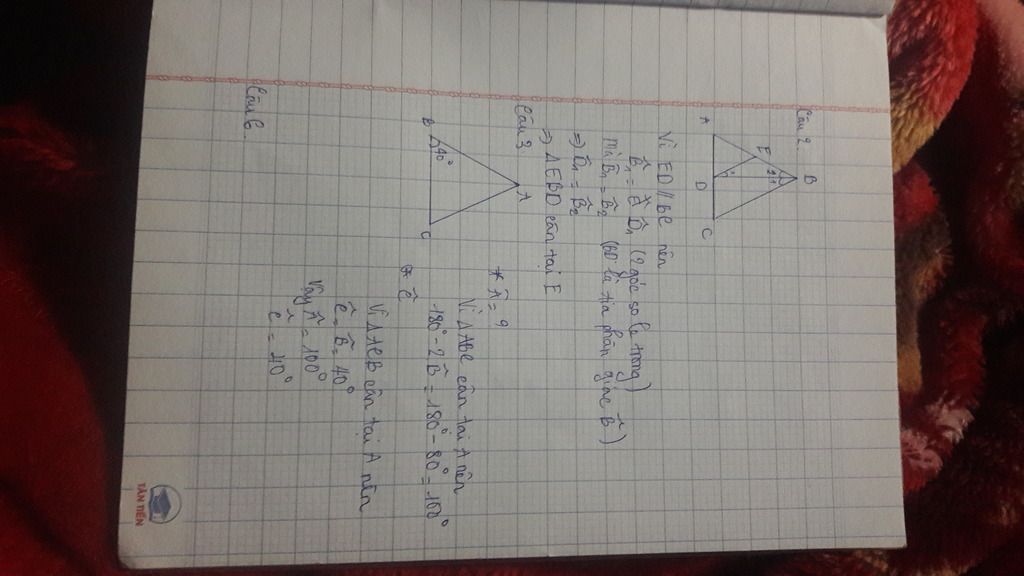 Câu 2.
B
2 1
E
1
A
D
C
Vì ED // BC nên
B̂₁ = D̂₁ (2 góc so le trong)
mà B̂₁ = B̂₂ (BD là tia phân giác B̂)
=> D̂₁ = B̂₂
=> ΔEBD cân tại E
Câu 3
A
B
40°
C
* Â = ?
Vì ΔABC cân tại A nên
180° - 2B̂ = 180° - 80° = 100°
* Ĉ
Vì ΔACB cân tại A nên
Ĉ = B̂ = 40°
Vậy Â = 100°
Ĉ = 40°
Câu 6.
TÂN TIẾN